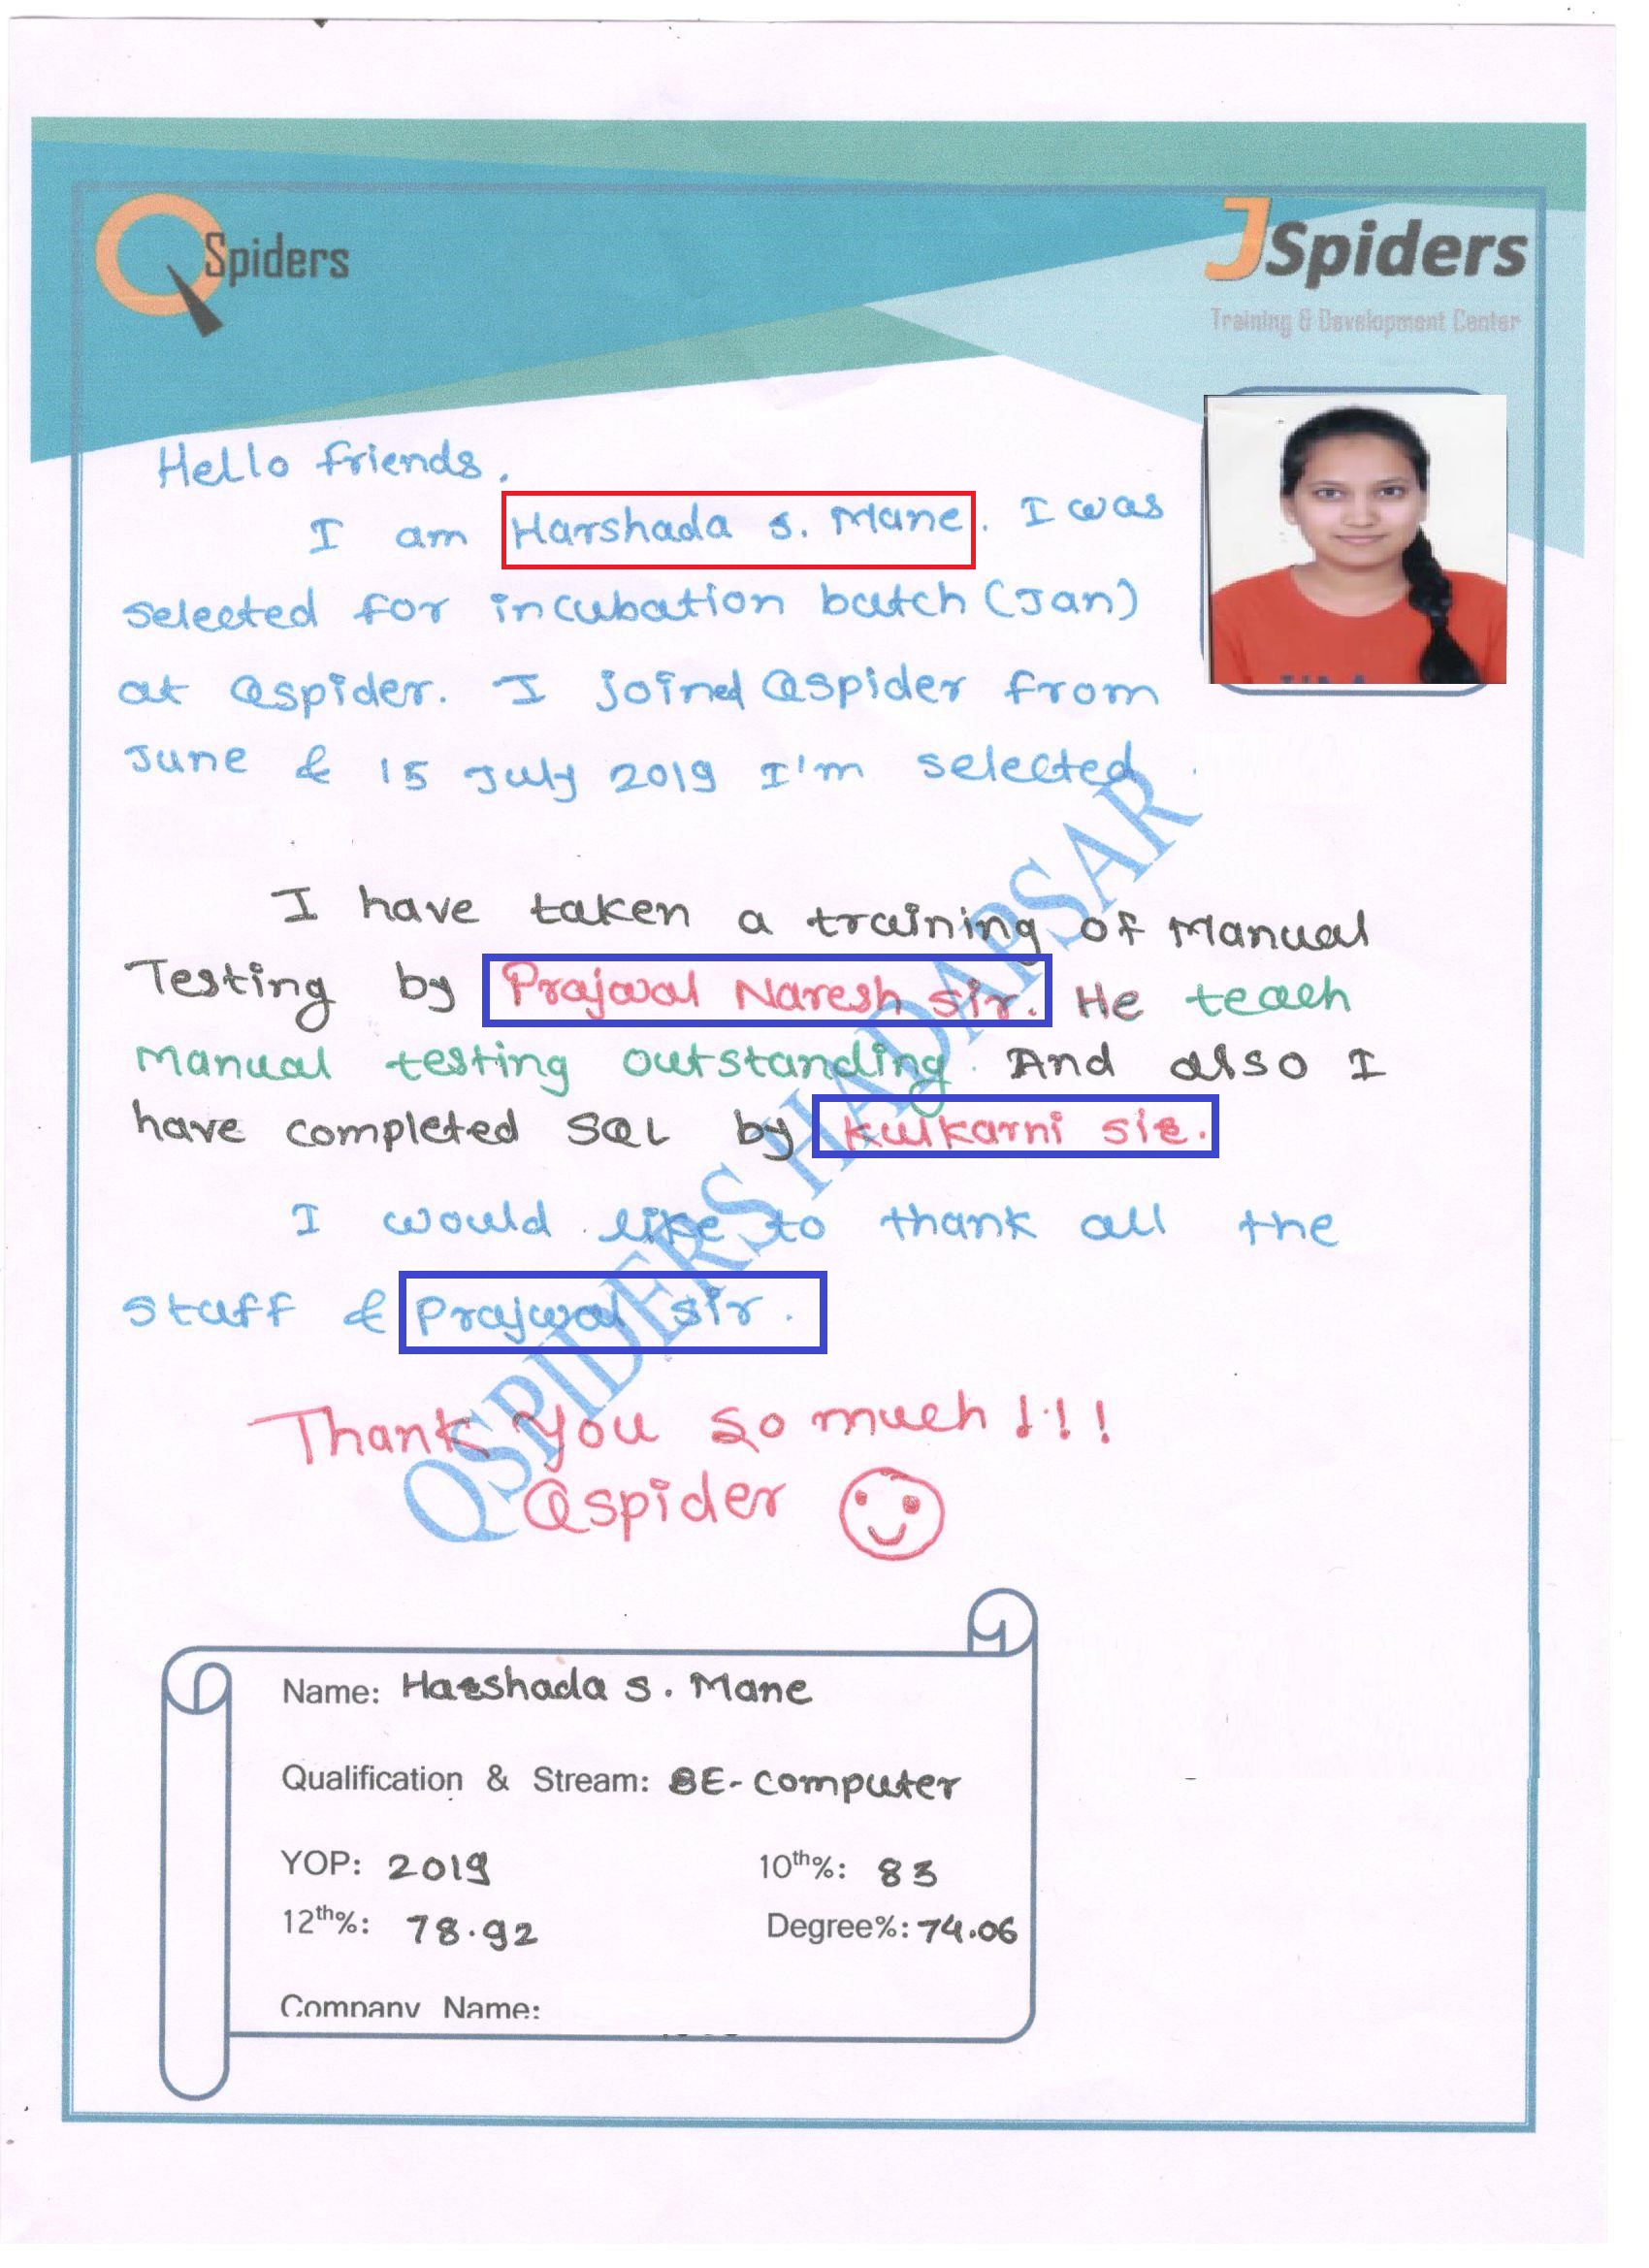 QSpiders
JSpiders
Training & Development Center
Hello friends,
I am Harshada S. Mane. I was
selected for incubation batch (Jan)
at Qspider. I joined Qspider from
June & 15 July 2019 I'm selected.
I have taken a training of Manual
Testing by Prajwal Naresh sir. He teach
Manual testing outstanding. And also I
have completed SQL by Kulkarni sir.
I would like to thank all the
staff & Prajwal sir.
QSPIDERS HADAPSAR
Thank you so much!!!
Qspider
Name: Harshada S. Mane
Qualification & Stream: BE-Computer
YOP: 2019 10th%: 83
12th%: 78.92 Degree%: 74.06
Company Name: